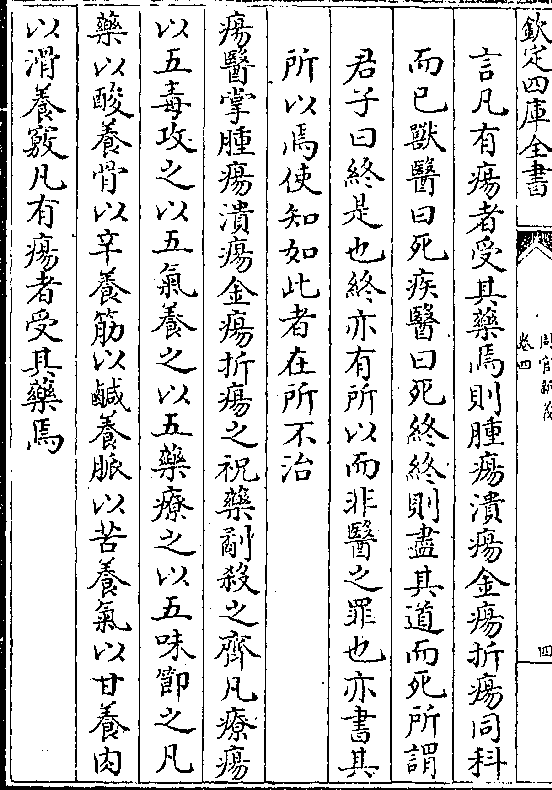 欽定四庫全書
卷四
四
言凡有瘍者受其藥焉則腫瘍潰瘍金瘍折瘍同科
而已獸醫曰死疾醫曰死終終則盡其道而死所謂
君子曰終是也終亦有所以而非醫之罪也亦書其
所以焉使知如此者在所不治
瘍醫掌腫瘍潰瘍金瘍折瘍之祝藥劀殺之齊凡療瘍
以五毒攻之以五氣養之以五藥療之以五味節之凡
藥以酸養骨以辛養筋以鹹養脈以苦養氣以甘養肉
以滑養竅凡有瘍者受其藥焉